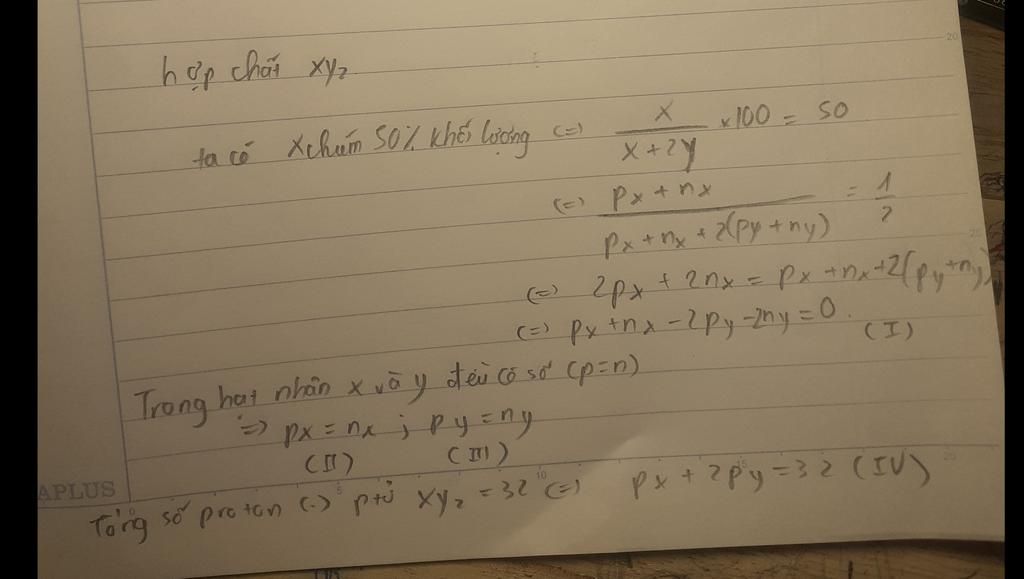 hợp chất xy₂
ta có X chiếm 50% khối lượng (=) x / x + 2y × 100 = 50
(=) px + nx / px + nx + 2(py + ny) = 1/2
(=) 2px + 2nx = px + nx + 2(py + ny)
(=) px + nx - 2py - 2ny = 0. (I)
Trong hạt nhân x và y đều có số (p=n)
=) px = nx ; py = ny
(II) (III)
APLUS
Tổng số proton (.) ptử xy₂ = 32 (=) px + 2py = 32 (IV)